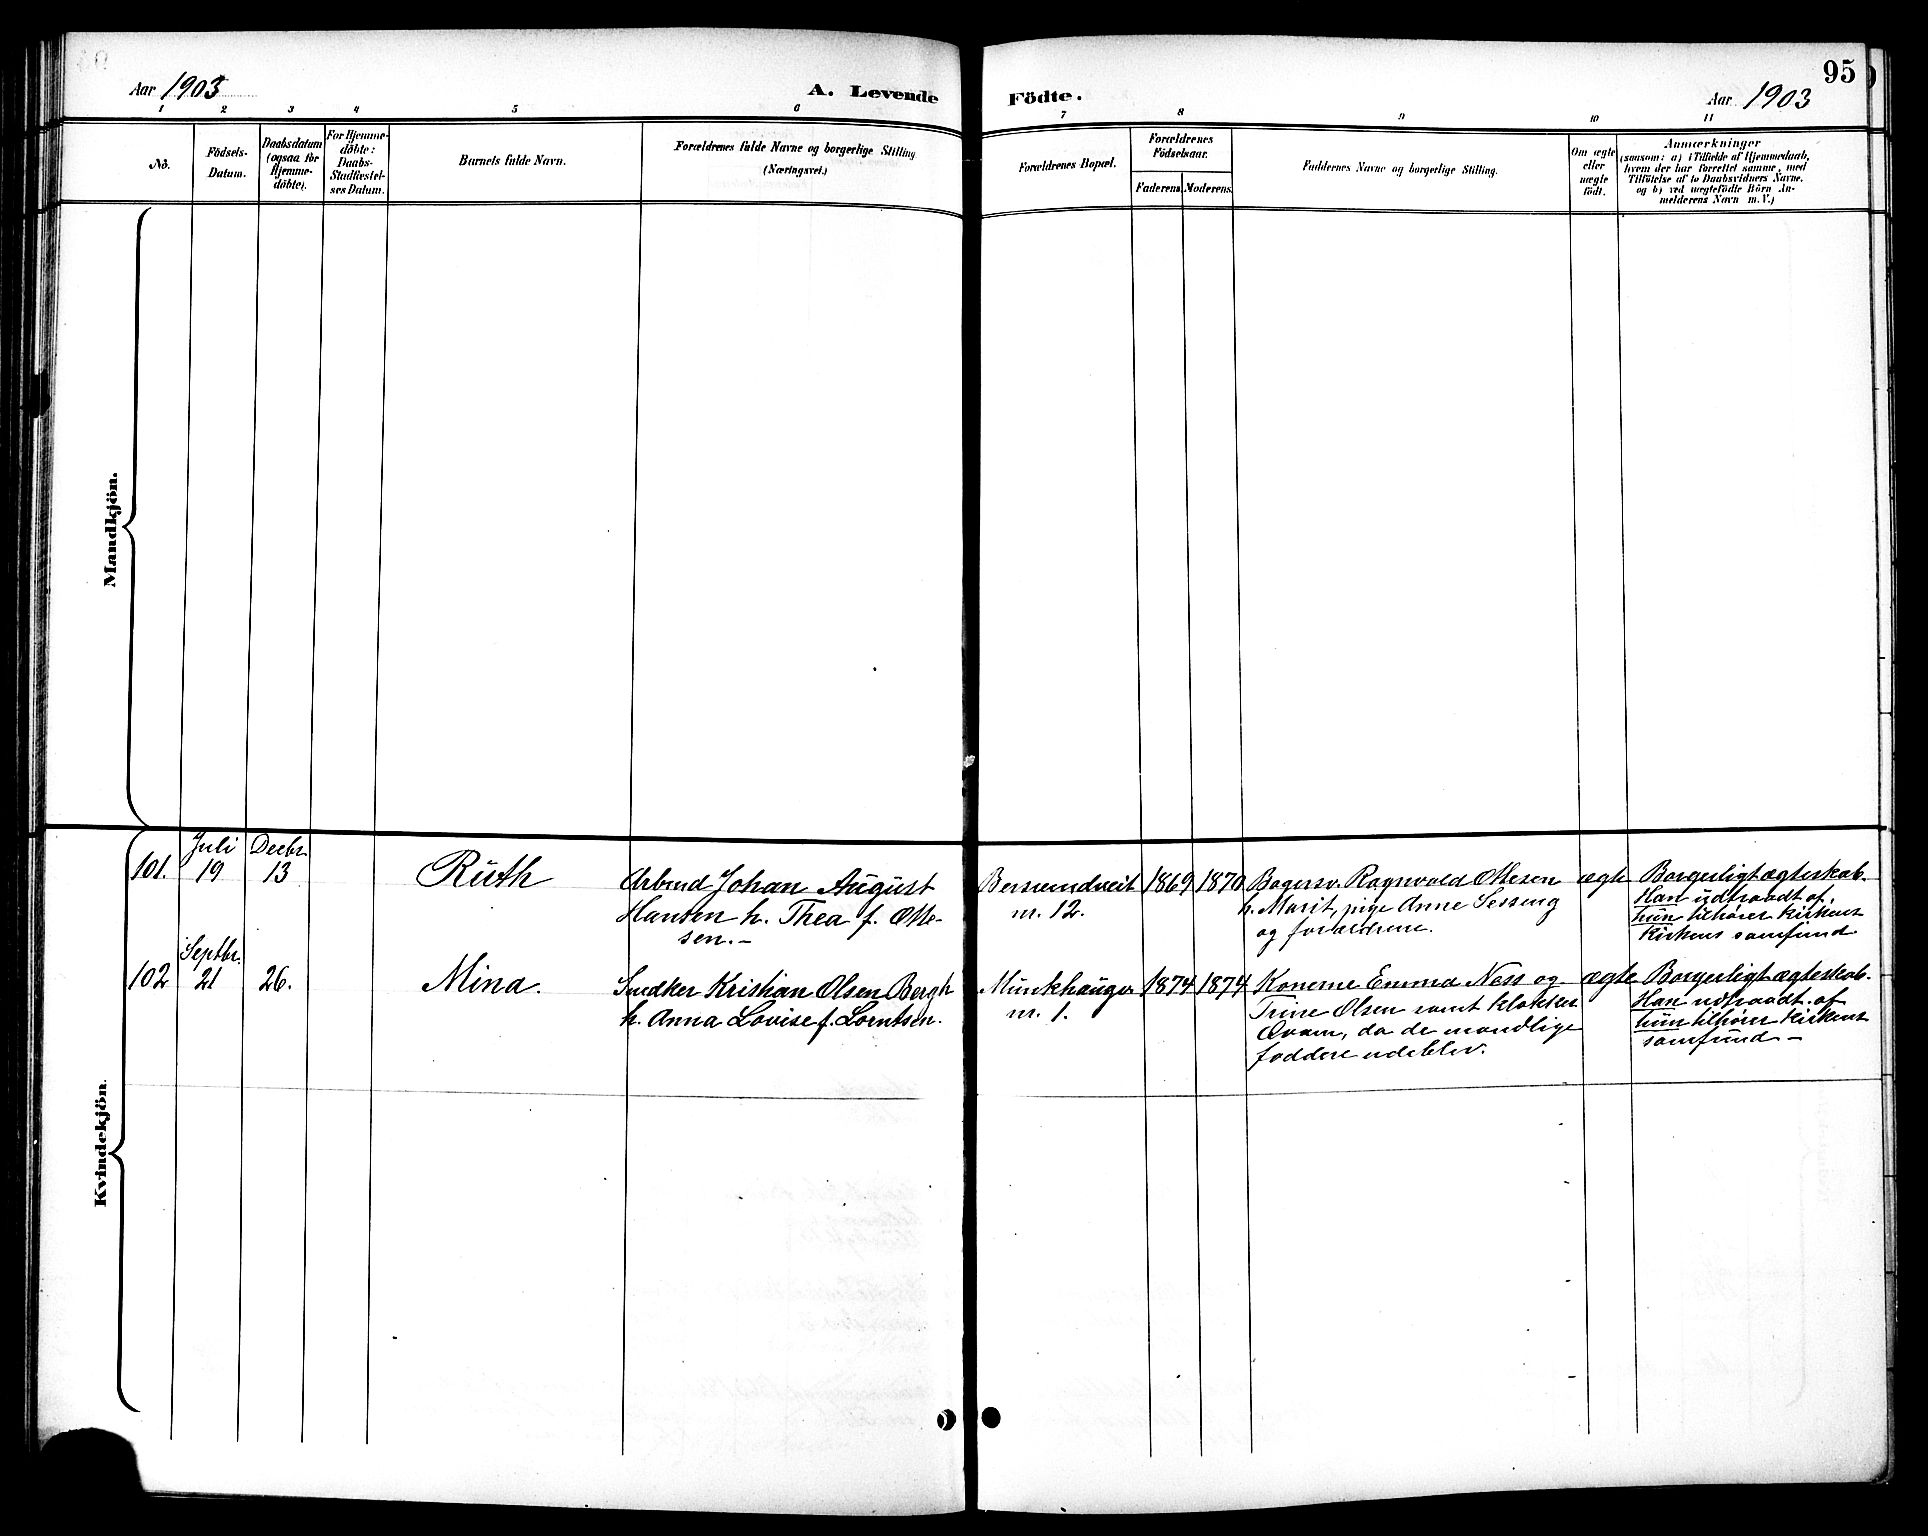 95
Aar 1903
A. Levende
Födte.
Aar 1903
1 2 3 4 5 6 7 8 9 10 11
No.
Födsels-
Datum.
Daabsdatum
(ogsaa for
Hjemme-
döbte).
For Hjemme-
döbte:
Daabs-
Stadfæstel-
ses Datum.
Barnets fulde Navn.
Forældrenes fulde Navne og borgerlige Stilling
(Næringsvei.)
Forældrenes Bopæl.
Forældrenes
Födselsaar.
Faderens
Moderens
Faddernes Navne og borgerlige Stilling.
Om ægte
eller
uægte
födt.
Anmærkninger
(saasom: a) i Tilfælde af Hjemmedaab,
hvem der har forrettet samme, med
Tilföielse af to Daabsvidners Navne,
og b) ved uægtefödte Börn An-
melderens Navn m. V.)
Mandkjön.
Kvindekjön.
101.
Juli
19
Decbr.
13
Ruth
Arbmd Johan August
Hansen h. Thea f. Otte-
sen.-
nr. 12.
1869
1870
Bagersv. Ragnvald Ottesen
h. Marit, pige Anne Sesseng
og forældrene.
ægte
Borgerligt ægteskab.
Han udtraadt af,
hun tilhører kirkens
kirkens samfund
102
Septbr.
21
26.
Mina.
Snedker Kristian Olsen Bergh
h. Anna Lovise f. Lorntsen.
Munkhaugv
nr. 1.
1874
1874
Konerne Emma Ness og
Trine Olsen samt klokker
Qvam, da de mandlige
faddere udeblev.
ægte
Borgerligt ægteskab.
Han udtraadt af
hun tilhører kirkens
samfund –